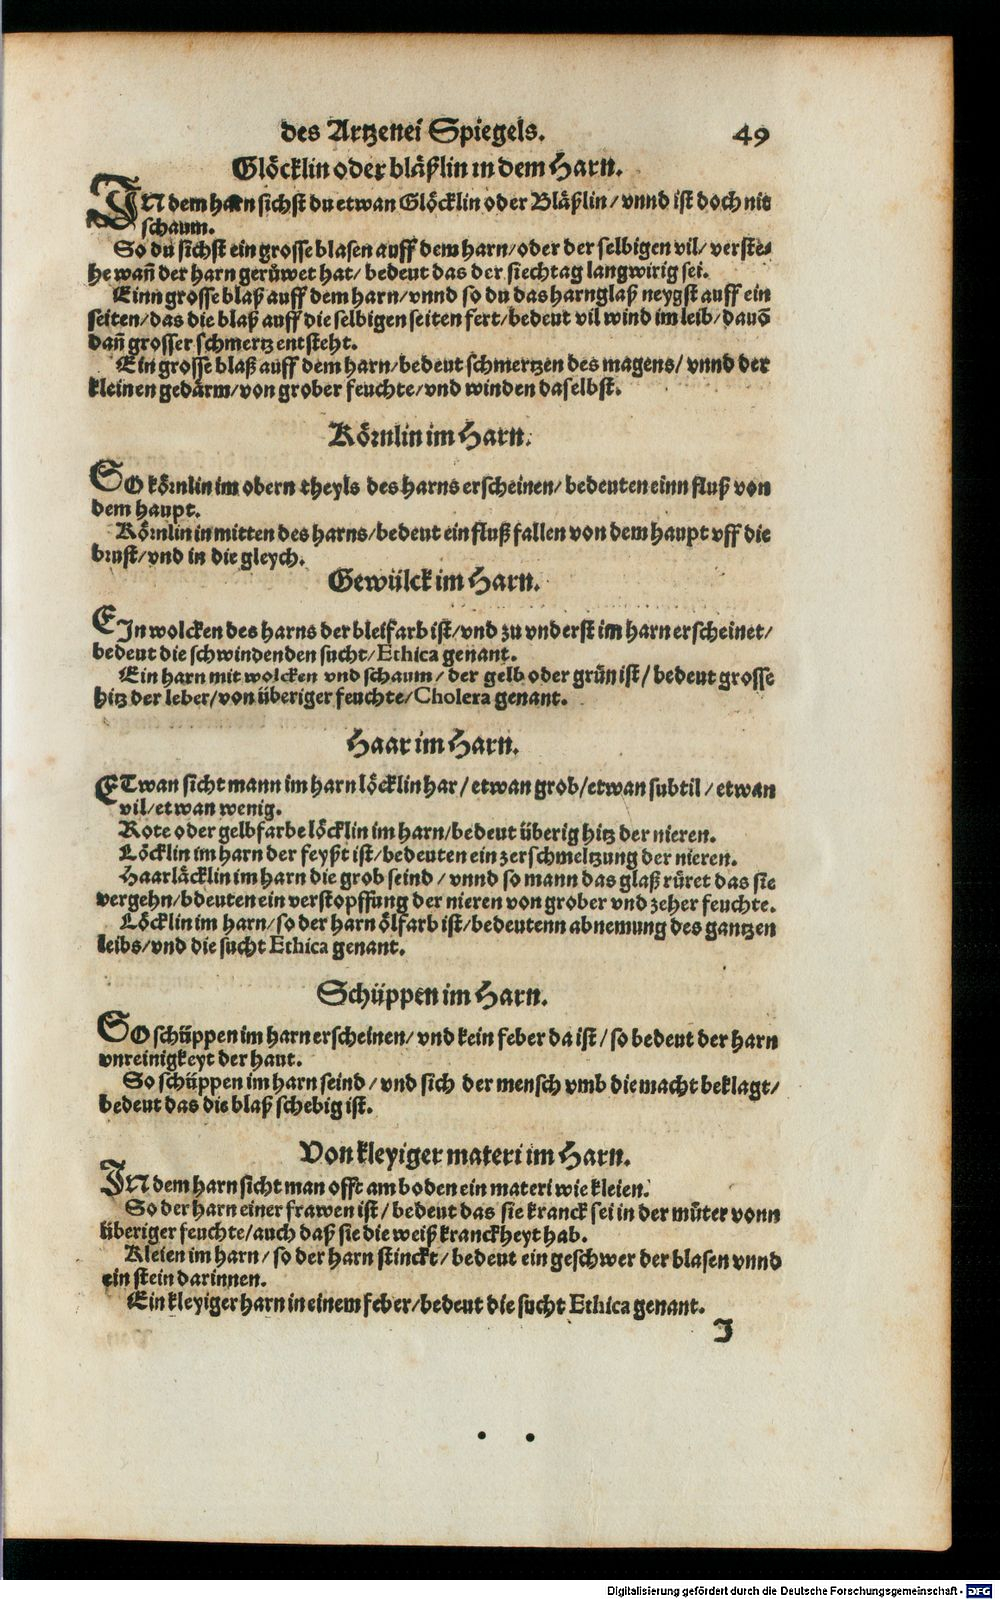 des Artzenei Spiegels. 49
Glöcklin oder bläßlin in dem Harn.
IN dem harn sichst du etwan Glöcklin oder Bläßlin / vnnd ist doch nit
schaum.
So du sichst ein grosse blasen auff dem harn / oder der selbigen vil / verste⸗
he wañ der harn gerůwet hat / bedeut das der siechtag langwirig sei.
Einn grosse blaß auff dem harn / vnnd so du das harnglaß neygst auff ein
seiten / das die blaß auff die selbigen seiten fert / bedeut vil wind im leib / dauõ
dañ grosser schmertz entsteht.
Ein grosse blaß auff dem harn / bedeut schmertzen des magens / vnnd der
kleinen gedärm / von grober feuchte / vnd winden daselbst.
Körnlin im Harn.
SO körnlin im obern theyls des harns erscheinen / bedeuten einn fluß von
dem haupt.
Körnlin in mitten des harns / bedeut ein fluß fallen von dem haupt vff die
brust / vnd in die gleych.
Gewülck im Harn.
EIn wolcken des harns der bleifarb ist / vnd zu vnderst im harn erscheinet /
bedeut die schwindenden sucht / Ethica genant.
Ein harn mit wolcken vnd schaum / der gelb oder grün ist / bedeut grosse
hitz der leber / von überiger feuchte / Cholera genant.
Haar im Harn.
ETwan sicht mann im harn löcklin har / etwan grob / etwan subtil / etwan
vil / etwan wenig.
Rote oder gelbfarbe löcklin im harn / bedeut überig hitz der nieren.
Löcklin im harn der feyßt ist / bedeuten ein zerschmeltzung der nieren.
Haarläcklin im harn die grob seind / vnnd so mann das glaß rüret das sie
vergehn / bdeuten ein verstopffung der nieren von grober vnd zeher feuchte.
Löcklin im harn / so der harn ölfarb ist / bedeutenn abnemung des gantzen
leibs / vnd die sucht Ethica genant.
Schüppen im Harn.
SO schüppen im harn erscheinen / vnd kein feber da ist / so bedeut der harn
vnreinigkeyt der haut.
So schüppen im harn seind / vnd sich der mensch vmb die macht beklagt /
bedeut das die blaß schebig ist.
Von kleyiger materi im Harn.
IN dem harn sicht man offt am boden ein materi wie kleien.
So der harn einer frawen ist / bedeut das sie kranck sei in der můter vonn
überiger feuchte / auch daß sie die weiß kranckheyt hab.
Kleien im harn / so der harn stinckt / bedeut ein geschwer der blasen vnnd
ein stein darinnen.
Ein kleyiger harn in einem feber / bedeut die sucht Ethica genant.
J
Digitalisierung gefördert durch die Deutsche Forschungsgemeinschaft - DFG